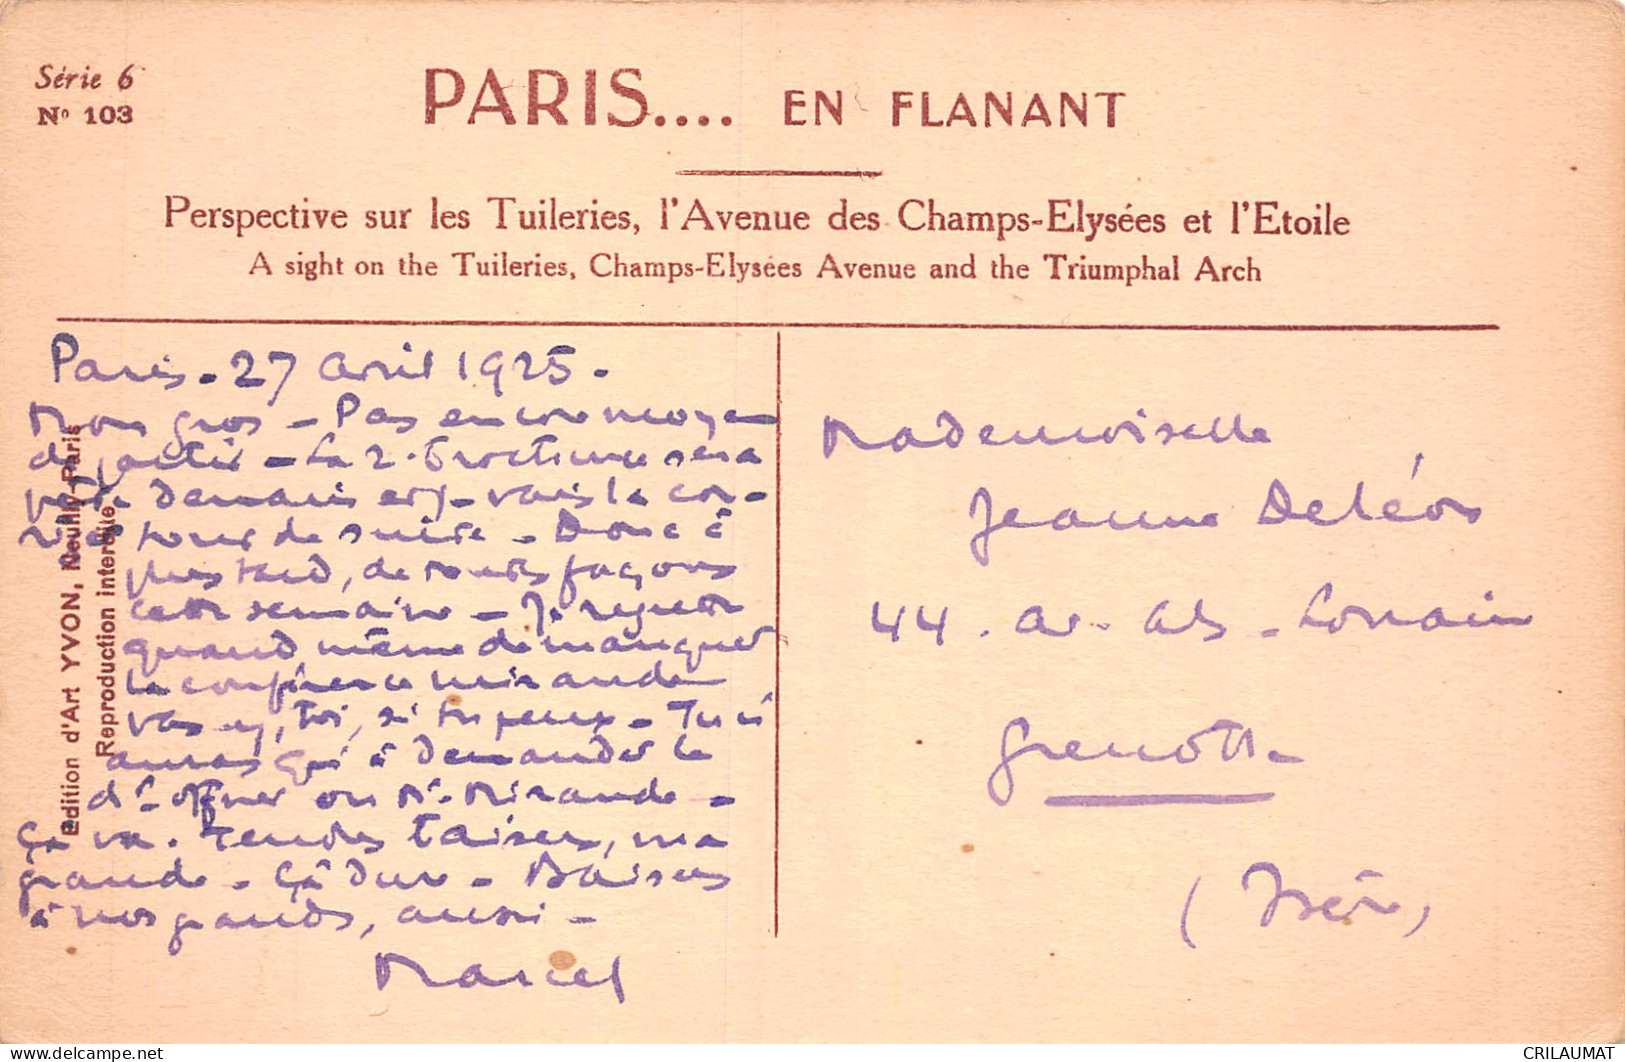 Série 6
N° 103
PARIS.... EN FLANANT
Perspective sur les Tuileries, l'Avenue des Champs-Elysées et l'Etoile
A sight on the Tuileries, Champs-Elysées Avenue and the Triumphal Arch
Edition d'Art YVON, Neuilly-Paris
Reproduction interdite
Paris - 27 avril 1925 -
Mon gros - Pas encore moyen
de partir - La 2e sera
demain vais la
de suite - Donc à
plus tard, de toutes façons
cette semaine - Je regrette
quand même de manquer
la conférence Mirande
vas-y, toi, si tu peux - Tu
auras qu'à demander
ou Mr Mirande -
Ça va. Tendres baisers, ma
grande - Ça dure - Baisers
à nos grands, aussi -
Marcel
Mademoiselle
Jeanne Deléon
44 . av. Als - Lorraine
Grenoble
(Isère)
CRILAUMAT